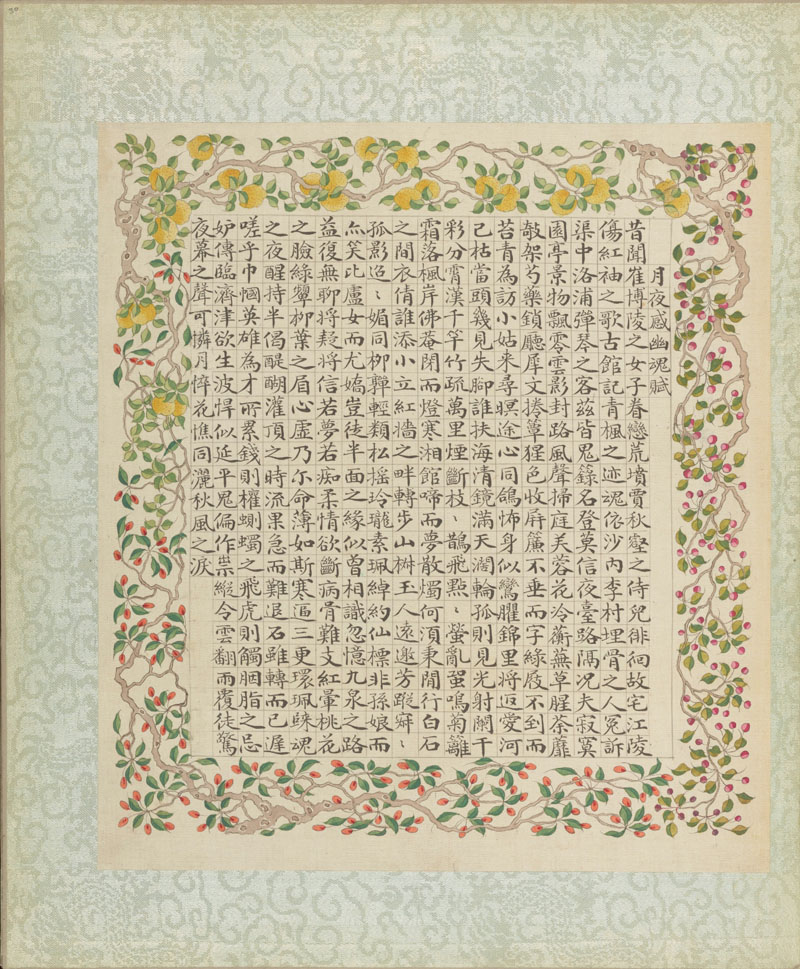 月夜感幽魂賦
昔聞崔博陵之女子眷戀荒墳賈秋壑之侍兒徘徊故宅江陵
傷紅袖之歌古館記青楓之迹魂依沙內李村埋骨之人冤訴
渠中洛浦彈琴之客茲皆鬼籙名登莫信夜臺路隔况夫寂寞
園亭景物飄零雲影封路風聲掃庭芙蓉花冷蘅蕪草腥荼蘼
攲架芍藥鎖廳犀文捲簟猩色收屏簾不垂而字綠屐不到而
苔青為訪小姑来尋暝途心同鴿怖身似鸞臞錦里將逗愛河
已枯當頭幾見失腳誰扶海清鏡滿天濶輪孤則見光射闌干
彩分霄漢千竿竹疏萬里煙斷枝〻鵲飛點〻螢亂蛩鳴菊籬
霜落楓岸佛菴閉而燈寒湘館啼而夢散燭何須秉閒行白石
之間衣倩誰添小立紅墻之畔轉步山樹玉人遠邀芳蹤寂〻
孤影迢〻媚同柳嚲輕類松搖玲瓏素珮綽約仙標非孫娘而
亦笑比盧女而尤嬌豈徒半面之緣似曾相識忽憶九泉之路
益復無聊將疑將信若夢若痴柔情欲斷病骨難支紅暈桃花
之臉綠顰柳葉之眉心虛乃尓命薄如斯寒逼三更環珮歸魂
之夜醒持半偈醍醐灌頂之時流果急而難退石雖轉而已遲
嗟乎巾幗英雄為才所累錢則權蠋之飛虎則觸胭脂之忌
妒傳臨濟津欲生波悍似延平鬼偏作祟縱令雲翻雨覆徒驚
夜幕之聲可憐月悴花憔同灑秋風之淚